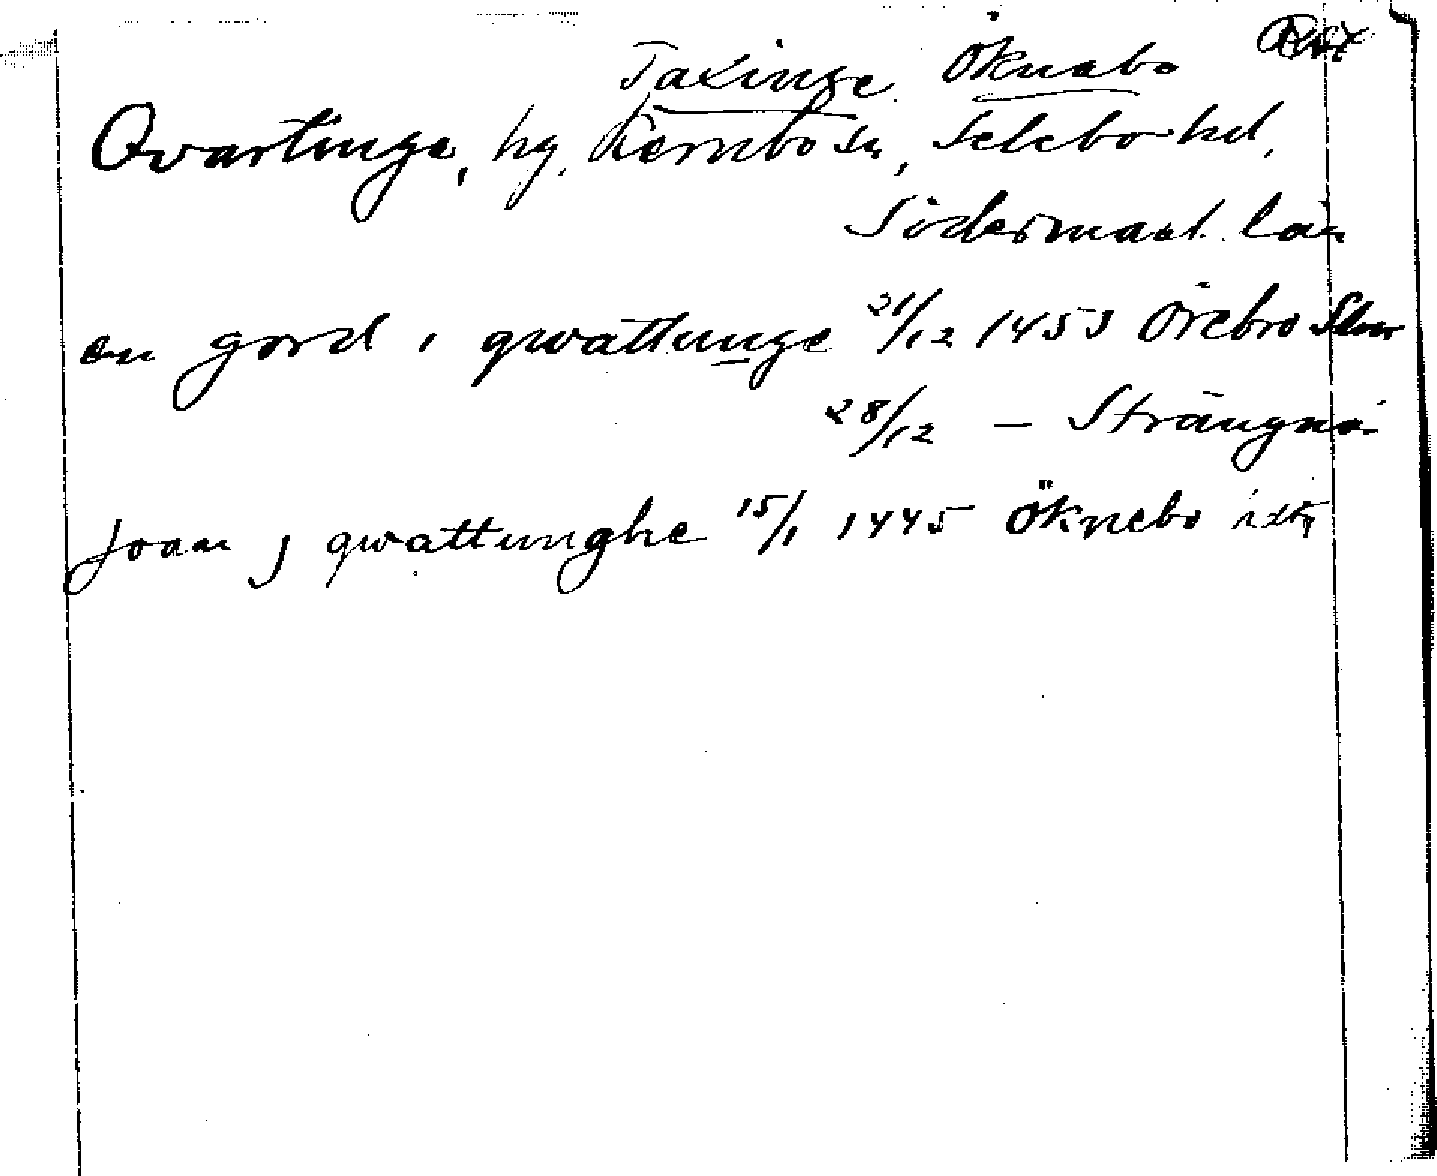 Taxinge Öknebo
Qvartinge, hg, Kernbo sn, Selebo hd,
Södermanl. län
en gord i qwattunge 21/12 1453 Örebro
28/12 — Strängnä
joan j qwattunghe 15/1 1445 Öknebo